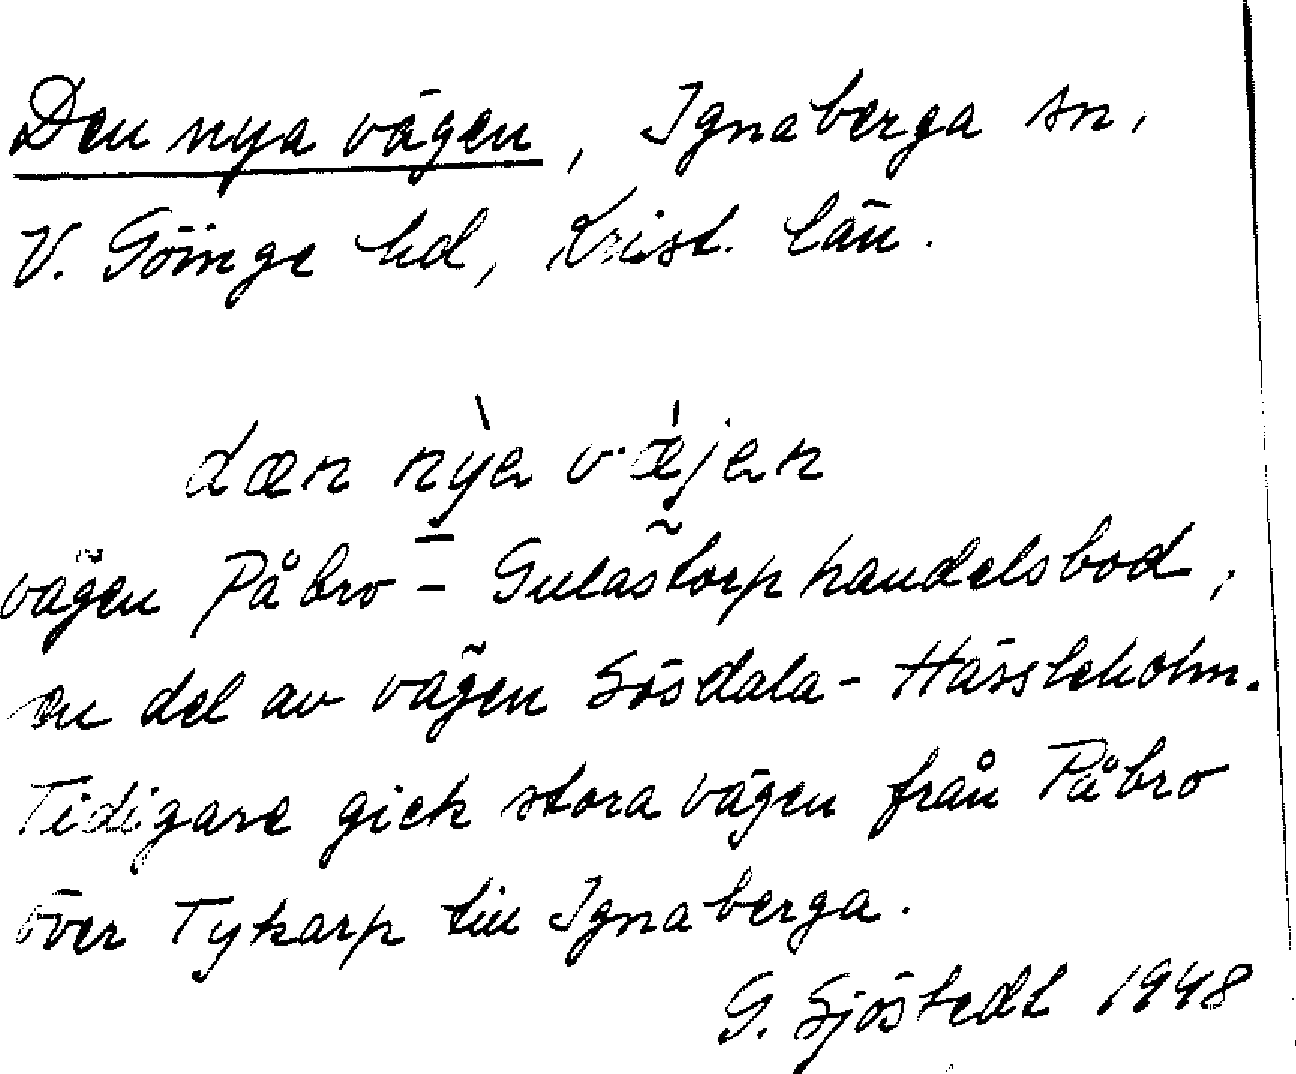 Den nya vägen, Ignaberga sn,
V. Göinge hd, Krist. län.
dæn nỳa væ̀jen
vägen Påbro - Gulastorp handelsbod,
en del av vägen Sösdala - Hässleholm.
Tidigare gick stora vägen från Påbro
över Tykarp till Ignaberga.
G. Sjöstedt 1948